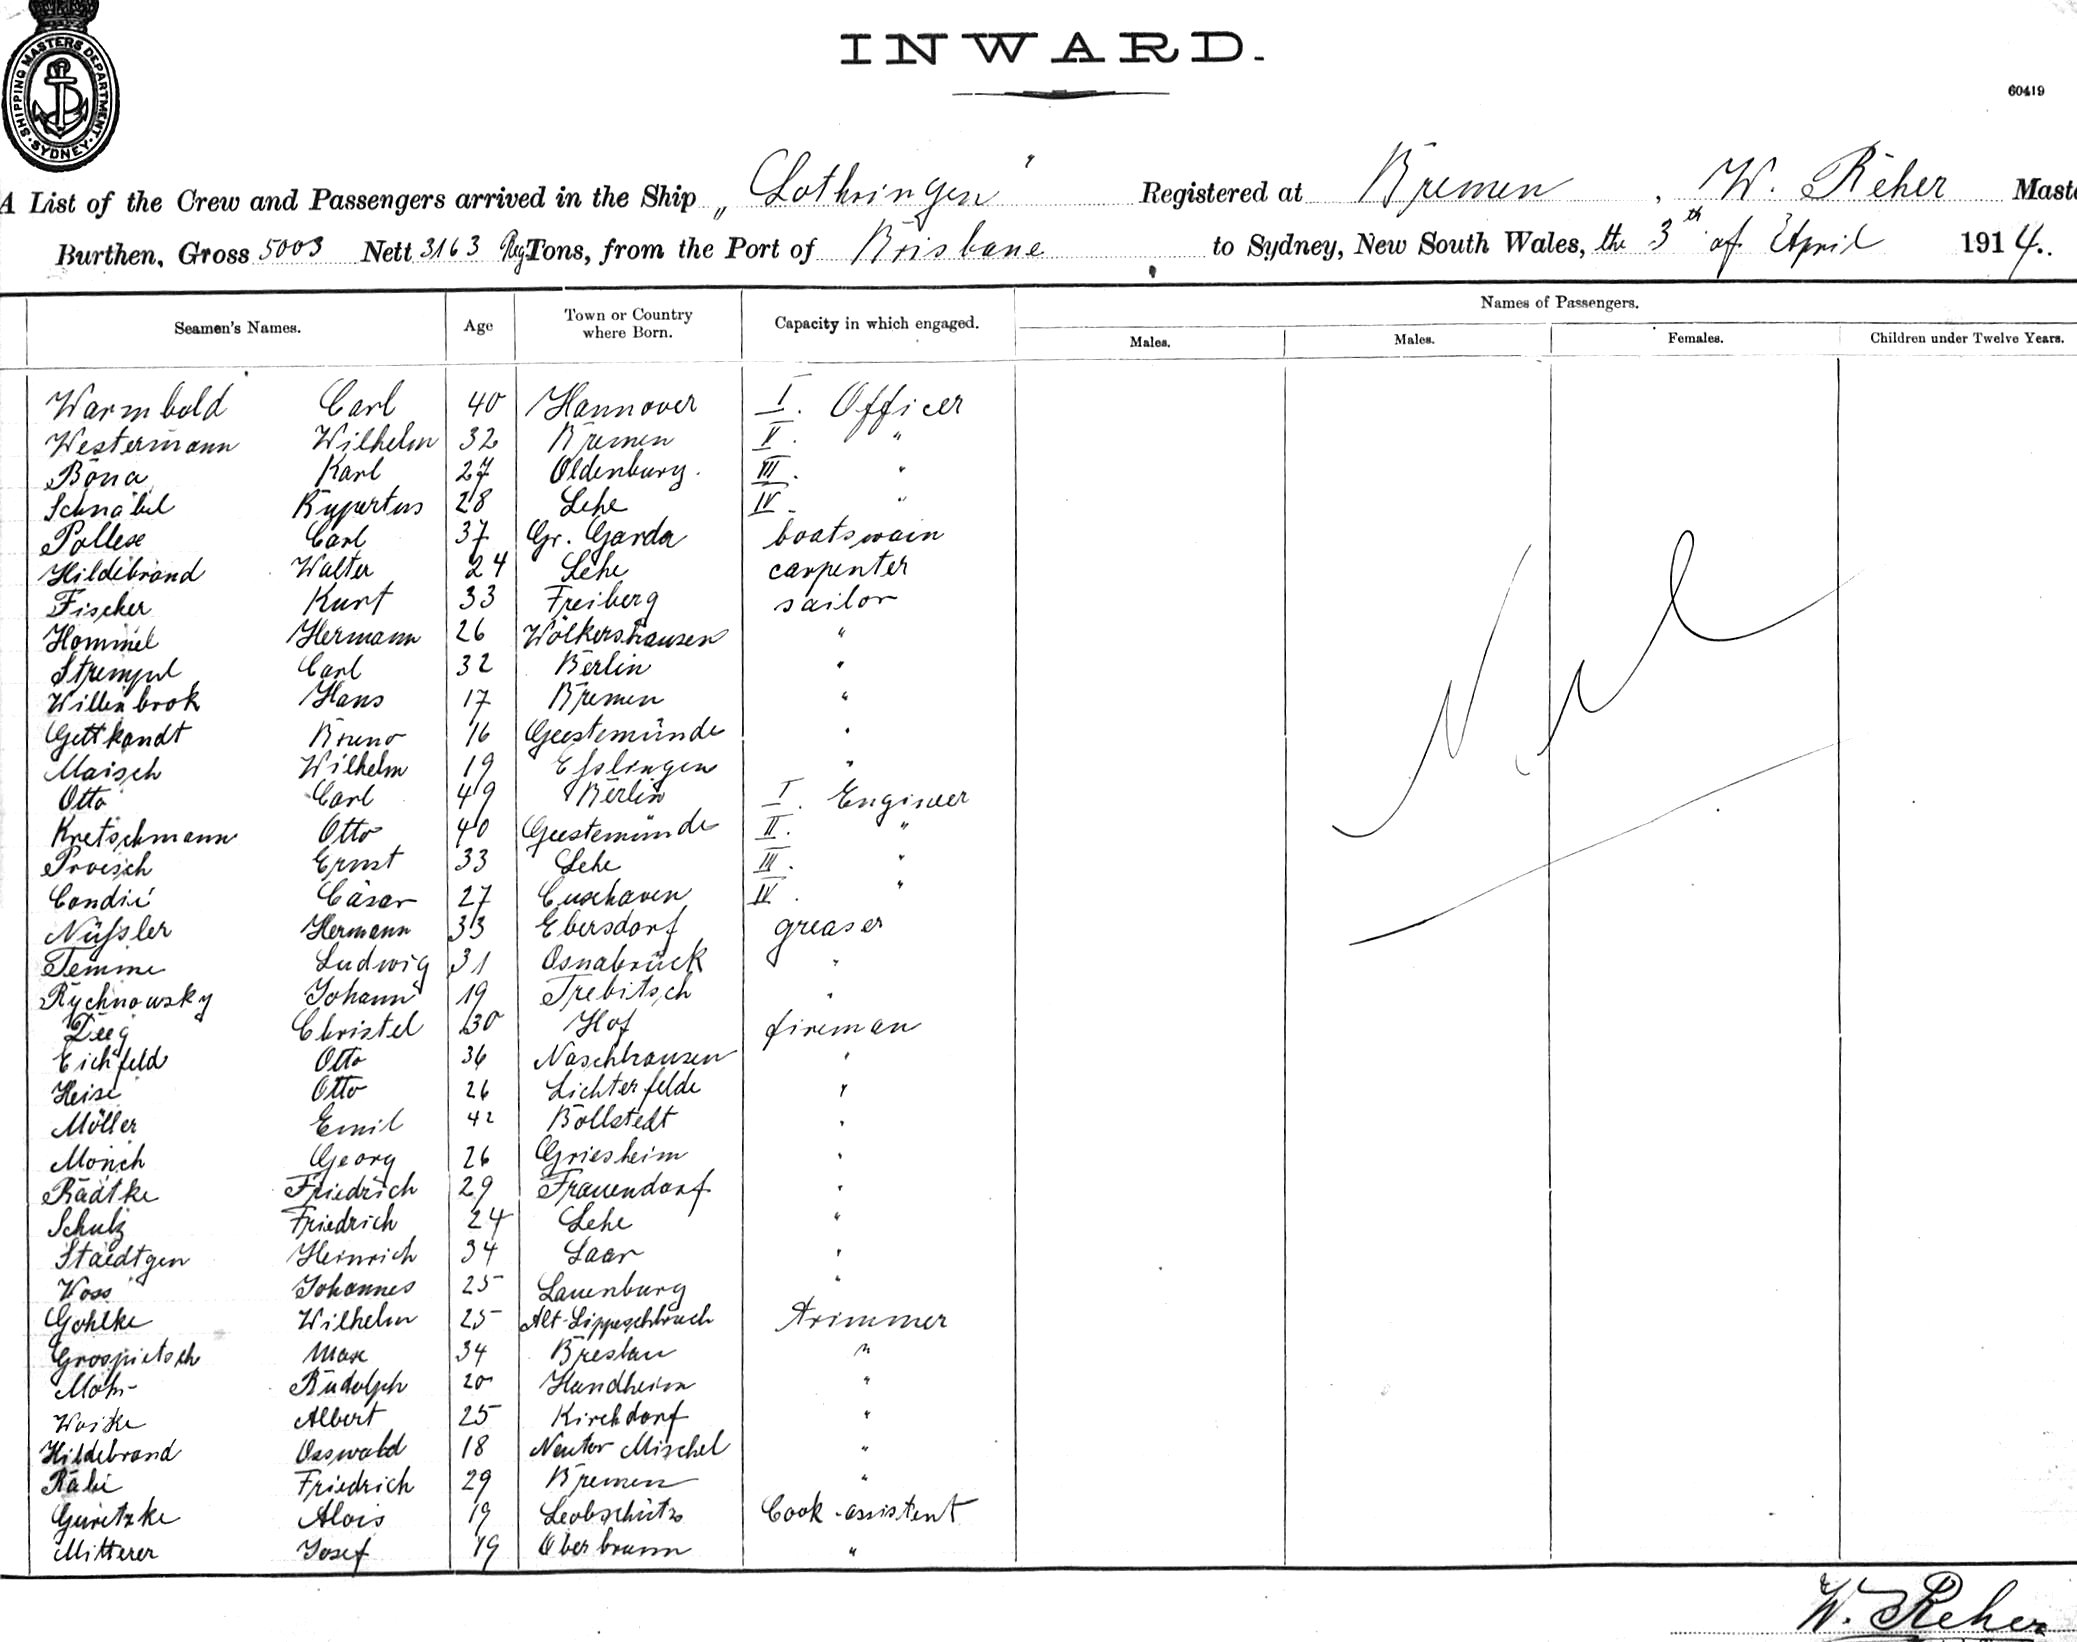 SHIPPING MASTERS DEPARTMENT · SYDNEY ·
INWARD.
60419
A List of the Crew and Passengers arrived in the Ship „Lothringen" Registered at Bremen, W. Reher Maste
Burthen, Gross 5003 Nett 3163 Reg Tons, from the Port of Brisbane to Sydney, New South Wales, the 3th of April 1914.
Seamen's Names. Age Town or Country where Born. Capacity in which engaged. Names of Passengers.
Males. Males. Females. Children under Twelve Years.
Warmbold Carl 40 Hannover I. Officer
Westermann Wilhelm 32 Bremen II. "
Böna Karl 27 Oldenburg. III. "
Schnabel Rupertus 28 Lehe IV. "
Pollexe Carl 37 Gr. Garda boatswain
Hildebrand Walter 24 Lehe carpenter
Fischer Kurt 33 Freiberg sailor
Hommel Hermann 26 Wölkershausen "
Strempel Carl 32 Berlin "
Willenbrok Hans 17 Bremen "
Gettkandt Bruno 16 Geestemünde "
Maisch Wilhelm 19 Eßlingen "
Otto Carl 49 Berlin I. Engineer
Kretschmann Otto 40 Geestemünde II. "
Proesch Ernst 33 Lehe III. "
Condié Cäsar 27 Cuxhaven IV. "
Nüßler Hermann 33 Ebersdorf greaser
Temme Ludwig 31 Osnabrück "
Rychnowsky Johann 19 Trebitsch "
Deeg Christel 30 Hof fireman
Eichfeld Otto 36 Naschhausen "
Heise Otto 26 Lichterfelde "
Möller Emil 42 Bollstedt "
Mönch Georg 26 Griesheim "
Radtke Friedrich 29 Frauendorf "
Schulz Friedrich 24 Lehe "
Staedtgen Heinrich 34 Laar "
Voss Johannes 25 Lauenburg "
Gohlke Wilhelm 25 Alt-Lippeschbruch trimmer
Grospietsch Max 34 Breslau "
Mohr Rudolph 20 Hundheim "
Woike Albert 25 Kirchdorf "
Hildebrand Osswald 18 Neutor Mischel "
Rabe Friedrich 29 Bremen "
Guretzke Alois 19 Leobschütz Cook-assistent
Mitterer Josef 19 Oberbrunn "
Nil
W. Reher